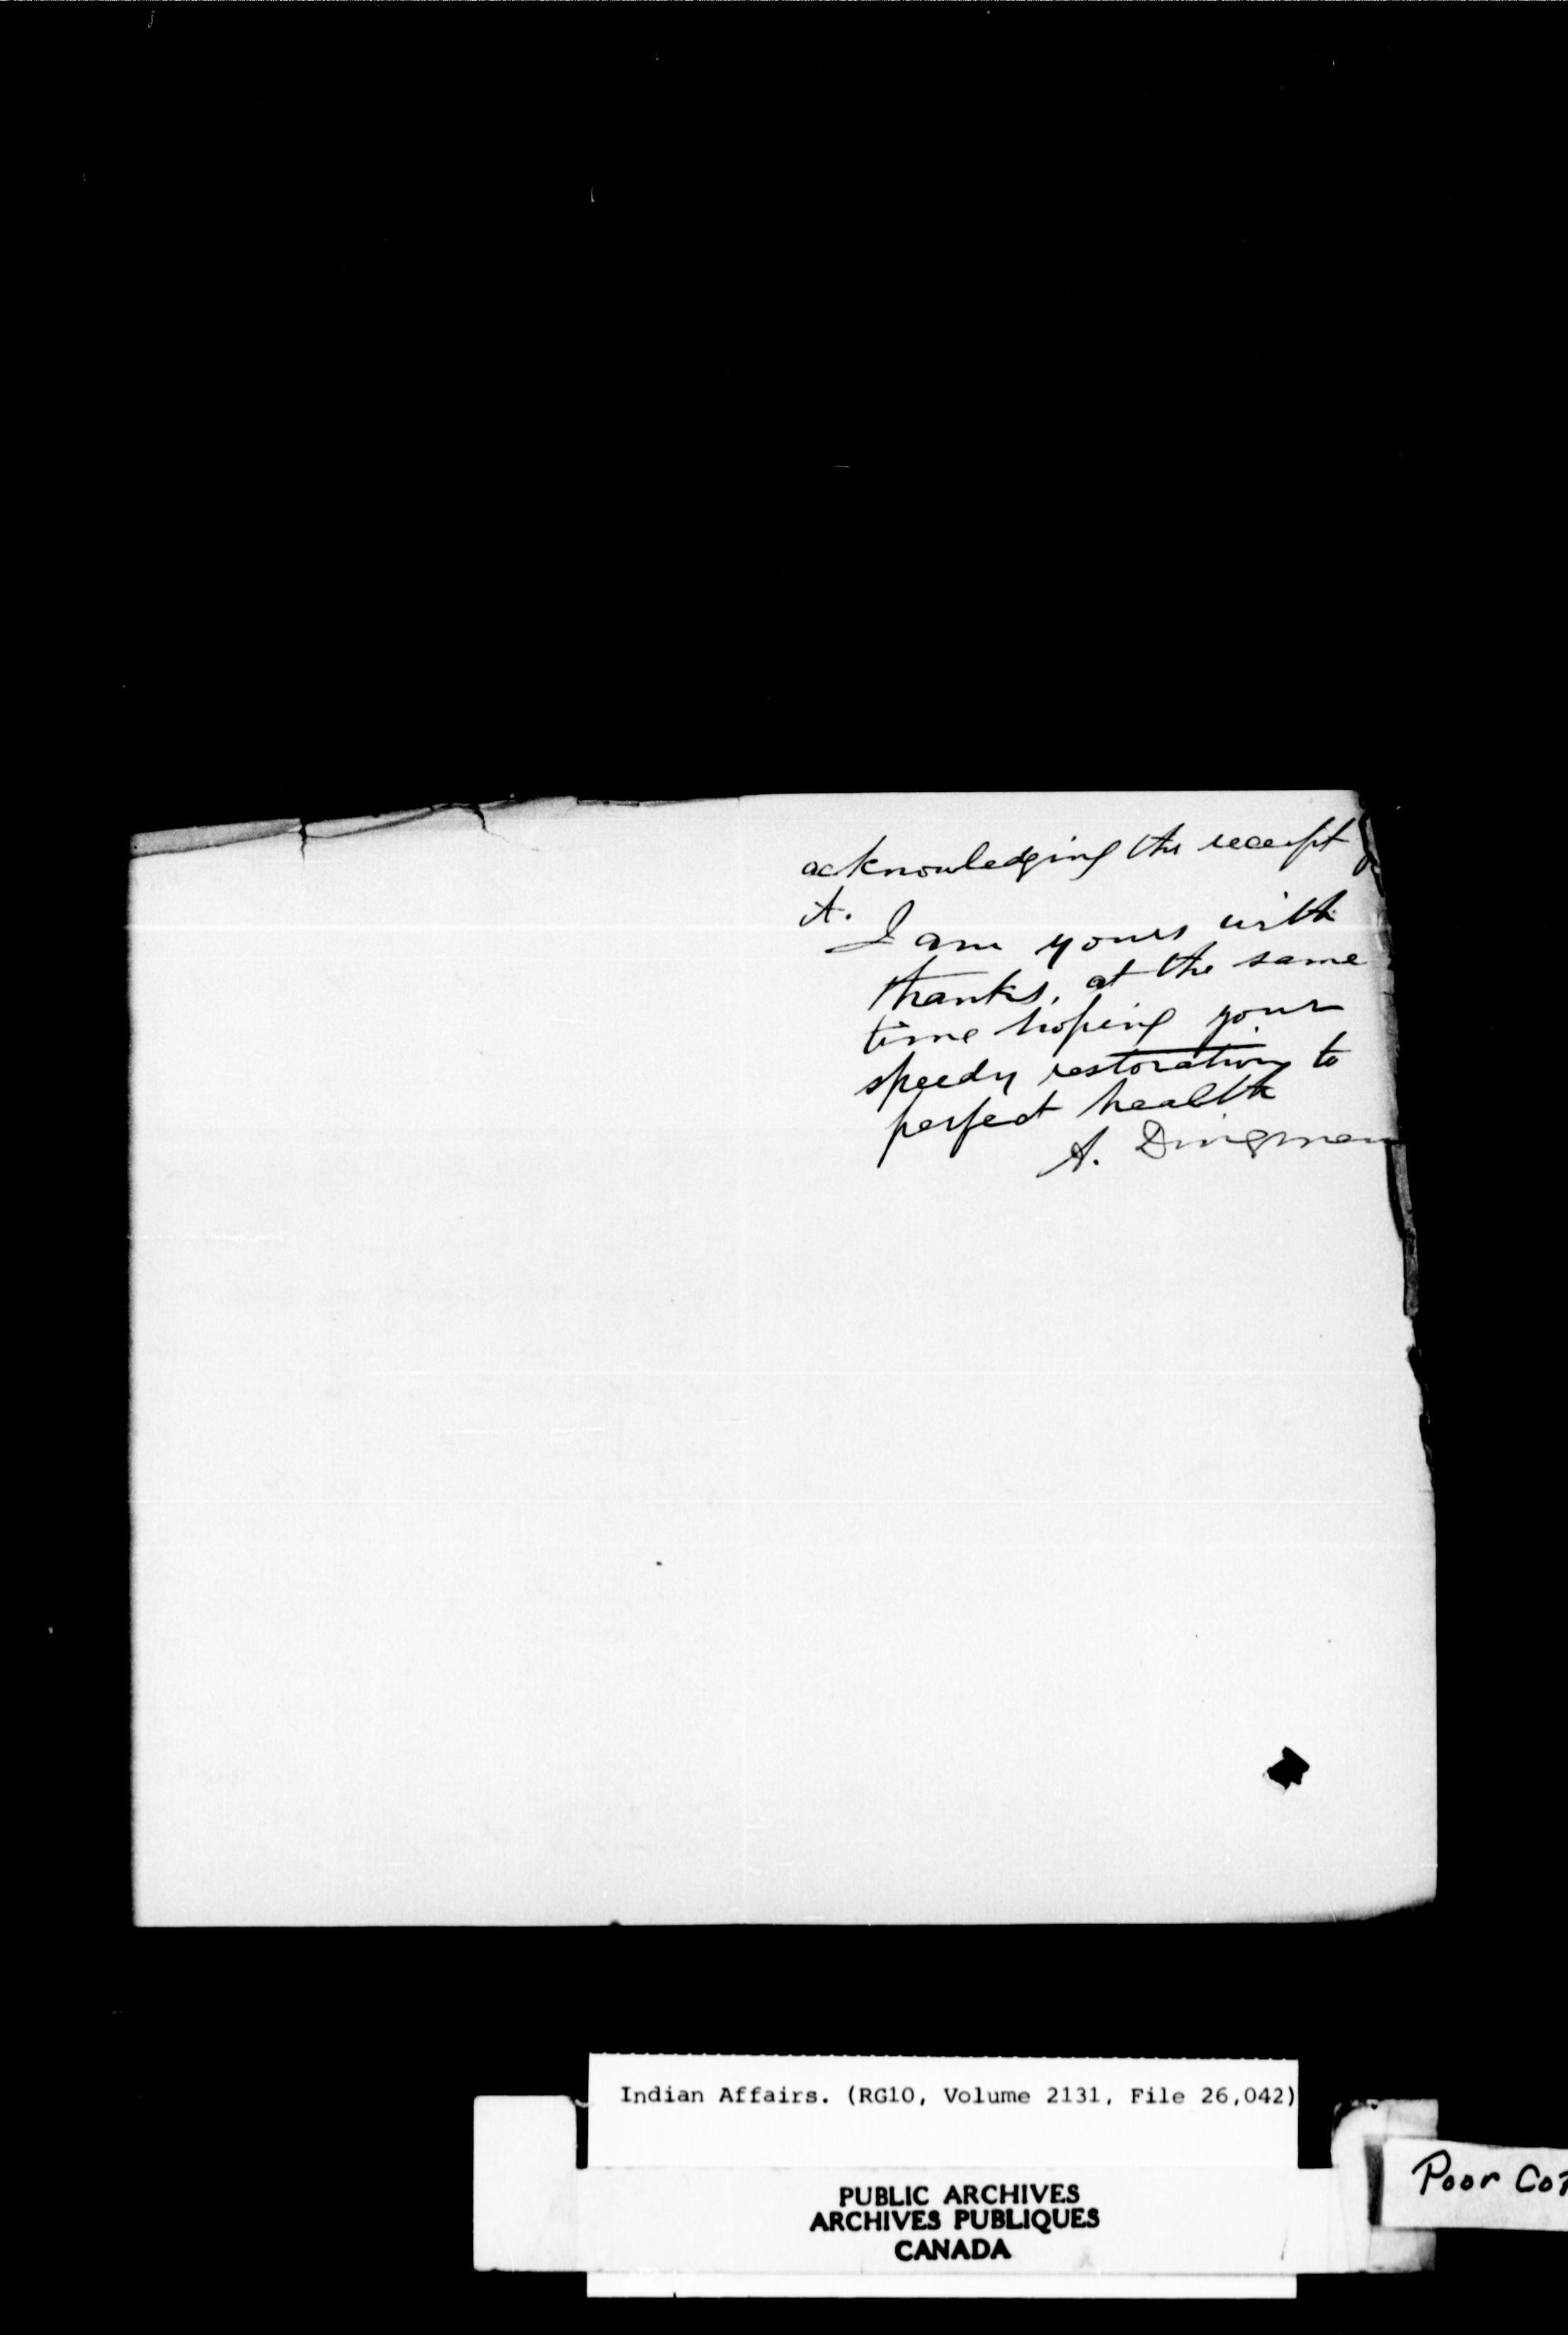 acknowledging the receipt
it.
I am yours with
thanks, at the same
time hoping your
speedy restoration to
perfect health
A. Dingman
Indian Affairs. (RG10, Volume 2131, File 26,042)
PUBLIC ARCHIVES
ARCHIVES PUBLIQUES
CANADA
Poor